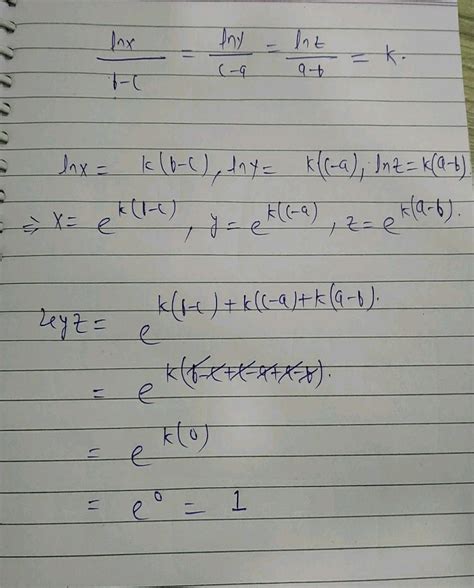 lnx/b-c = lny/c-a = lnz/a-b = k.
lnx = k(b-c), lny = k(c-a), lnz = k(a-b)
⇒ x = e^k(b-c), y = e^k(c-a), z = e^k(a-b).
xyz = e^k(b-c)+k(c-a)+k(a-b).
= e^k(b-c+c-a+a-b).
= e^k(0)
= e^0 = 1